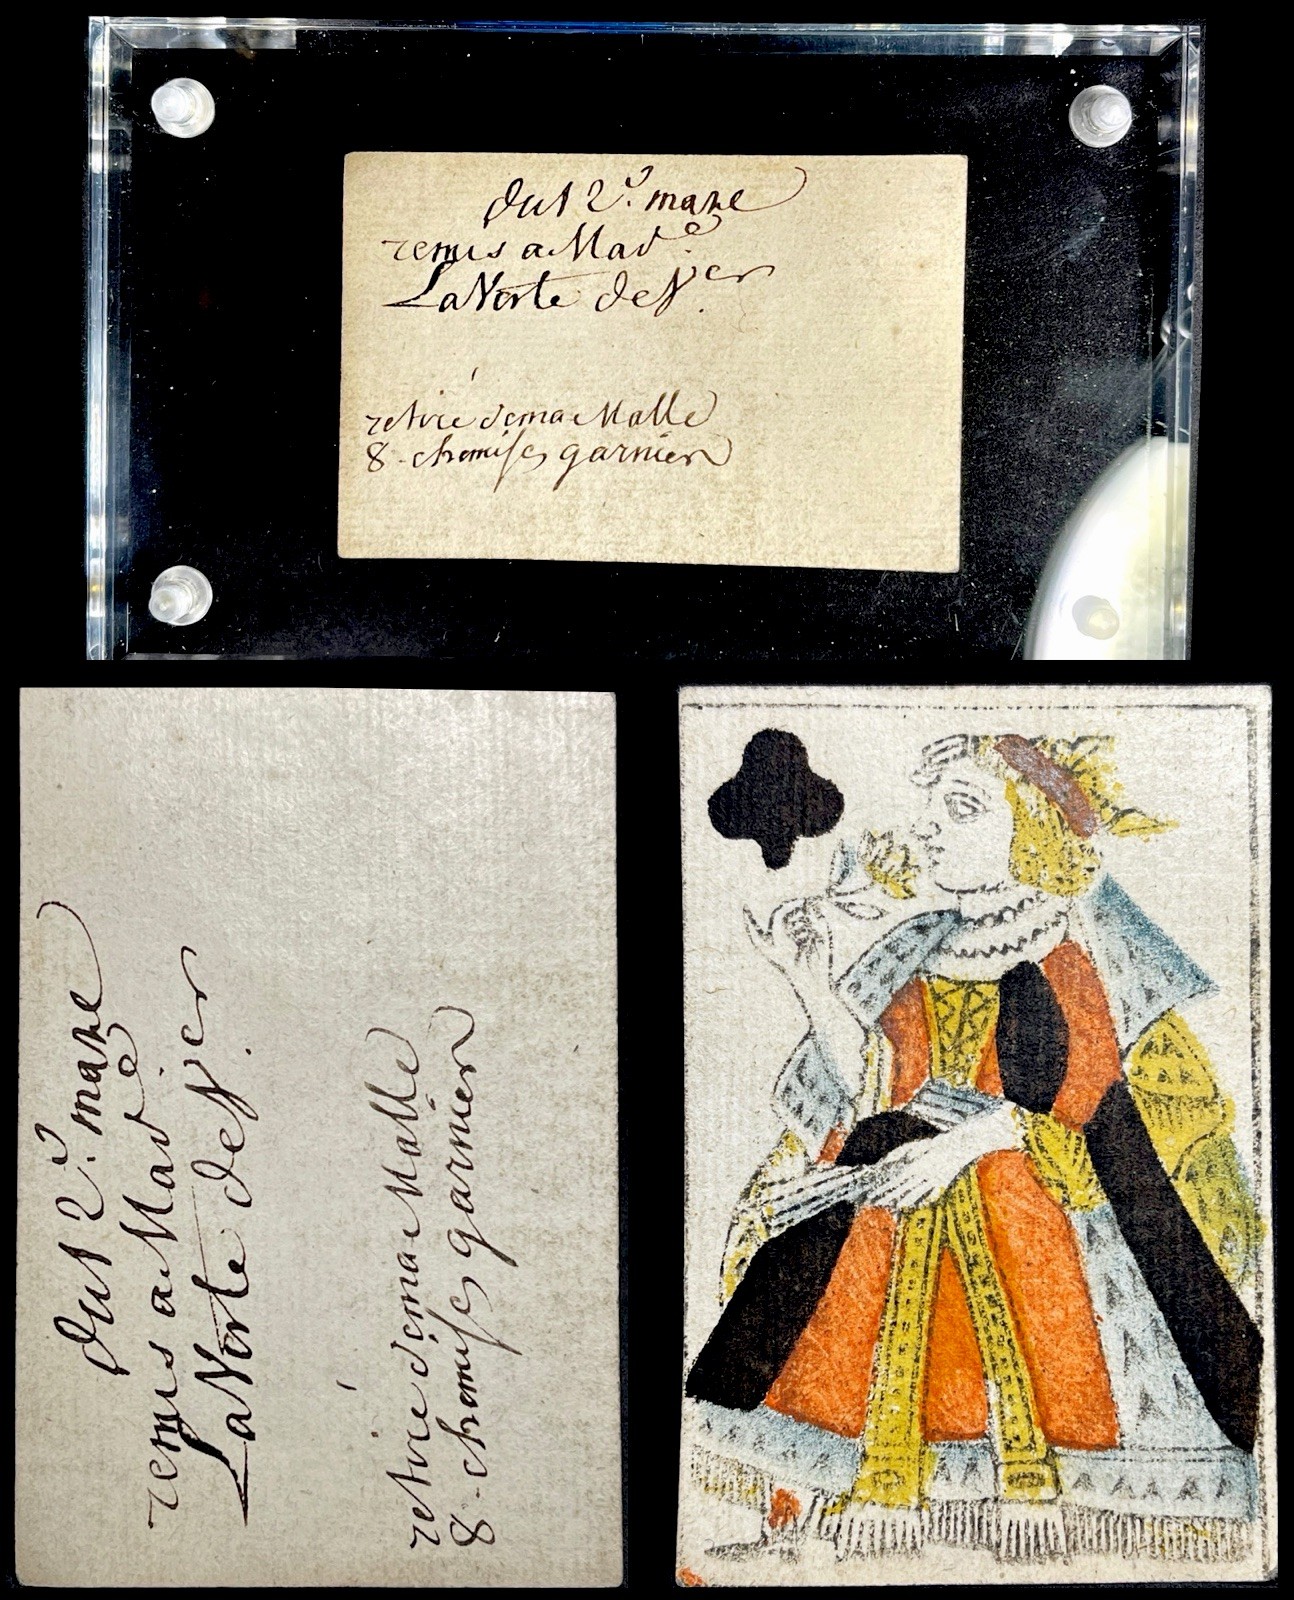 Du 12.e mars
remis a Mad.e
La Porte de
retiré de ma Malle
8 - chemises garnier
Du 12.e mars
remis a Mad.e
La Porte de
retiré de ma Malle
8 - chemises garnier